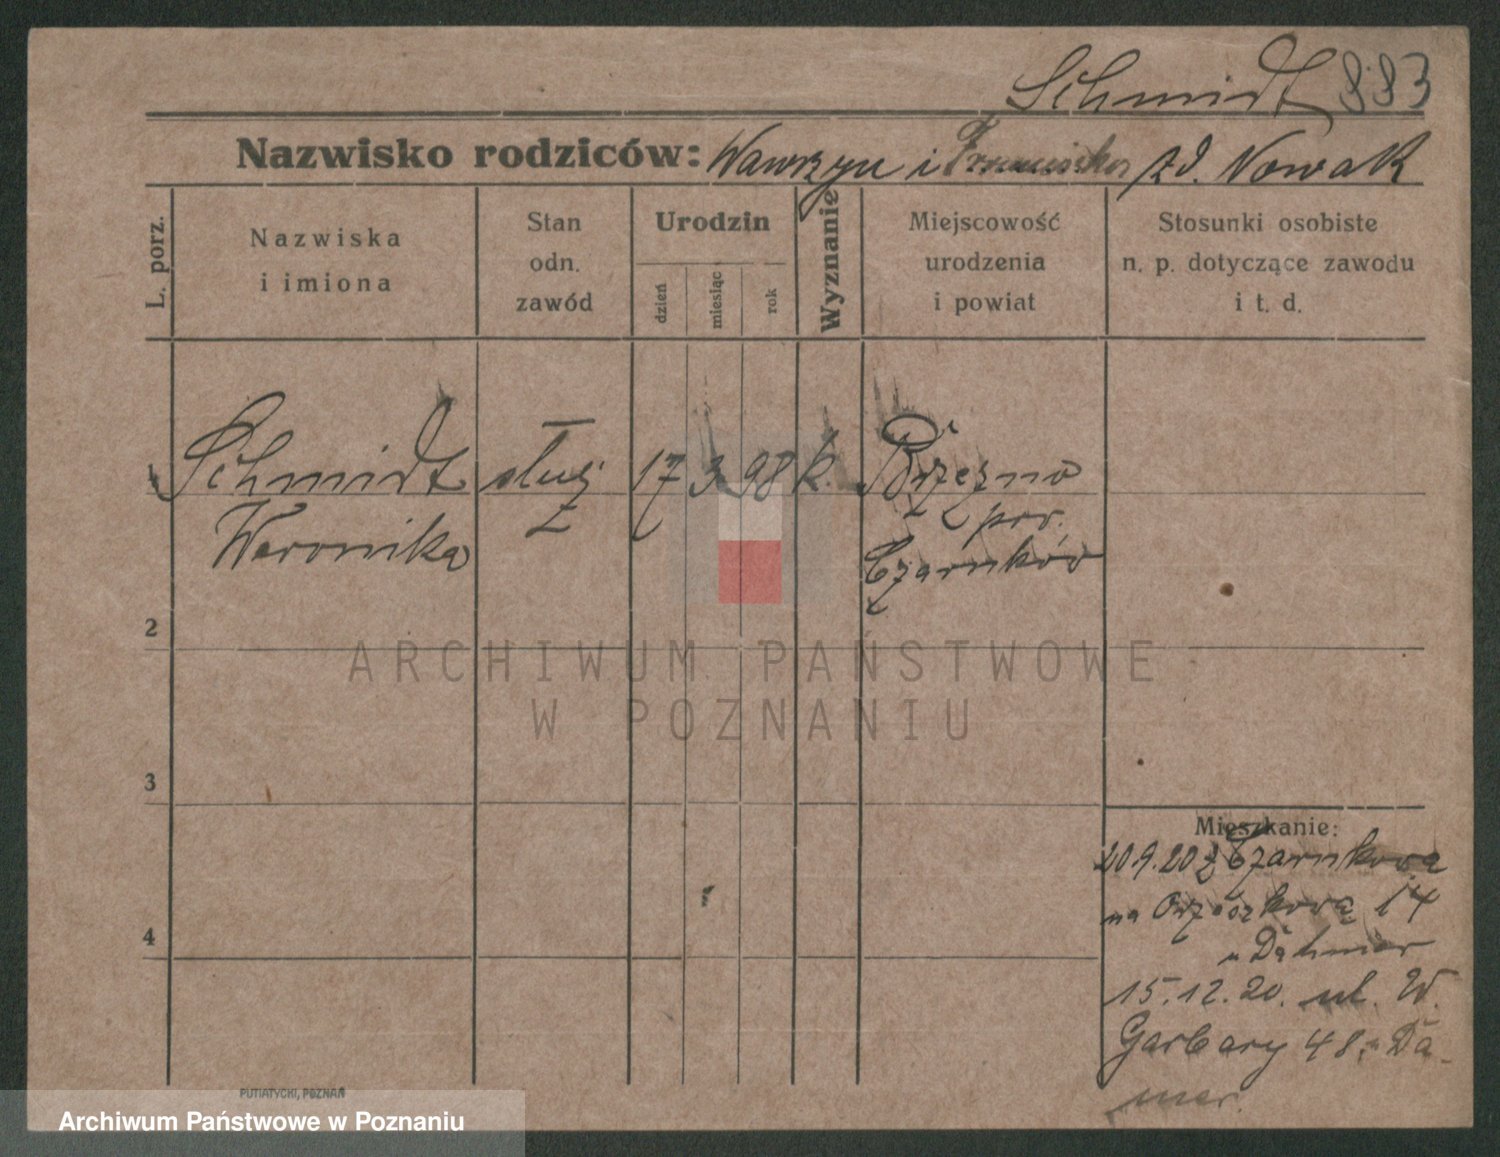 Schmidt 883
Nazwisko rodziców: Wawrzyn i Franciszka zd. Nowak
L. porz.
Nazwiska
i imiona
Stan
odn.
zawód
Urodzin
dzień
miesiąc
rok
Wyznanie
Miejscowość
urodzenia
i powiat
Stosunki osobiste
n. p. dotyczące zawodu
i t. d.
1 Schmidt służ 17 3 98 k. Brzezno
Weronika pow.
Czarnków
2
3
4
Mieszkanie:
20.9.20 z Czarnkowa
na Orzeszkową 14
u Dahmer
15.12.20. ul. W.
Garbary 48, u Da-
mer.
PUTIATYCKI, POZNAŃ
ARCHIWUM PAŃSTWOWE
W POZNANIU
Archiwum Państwowe w Poznaniu